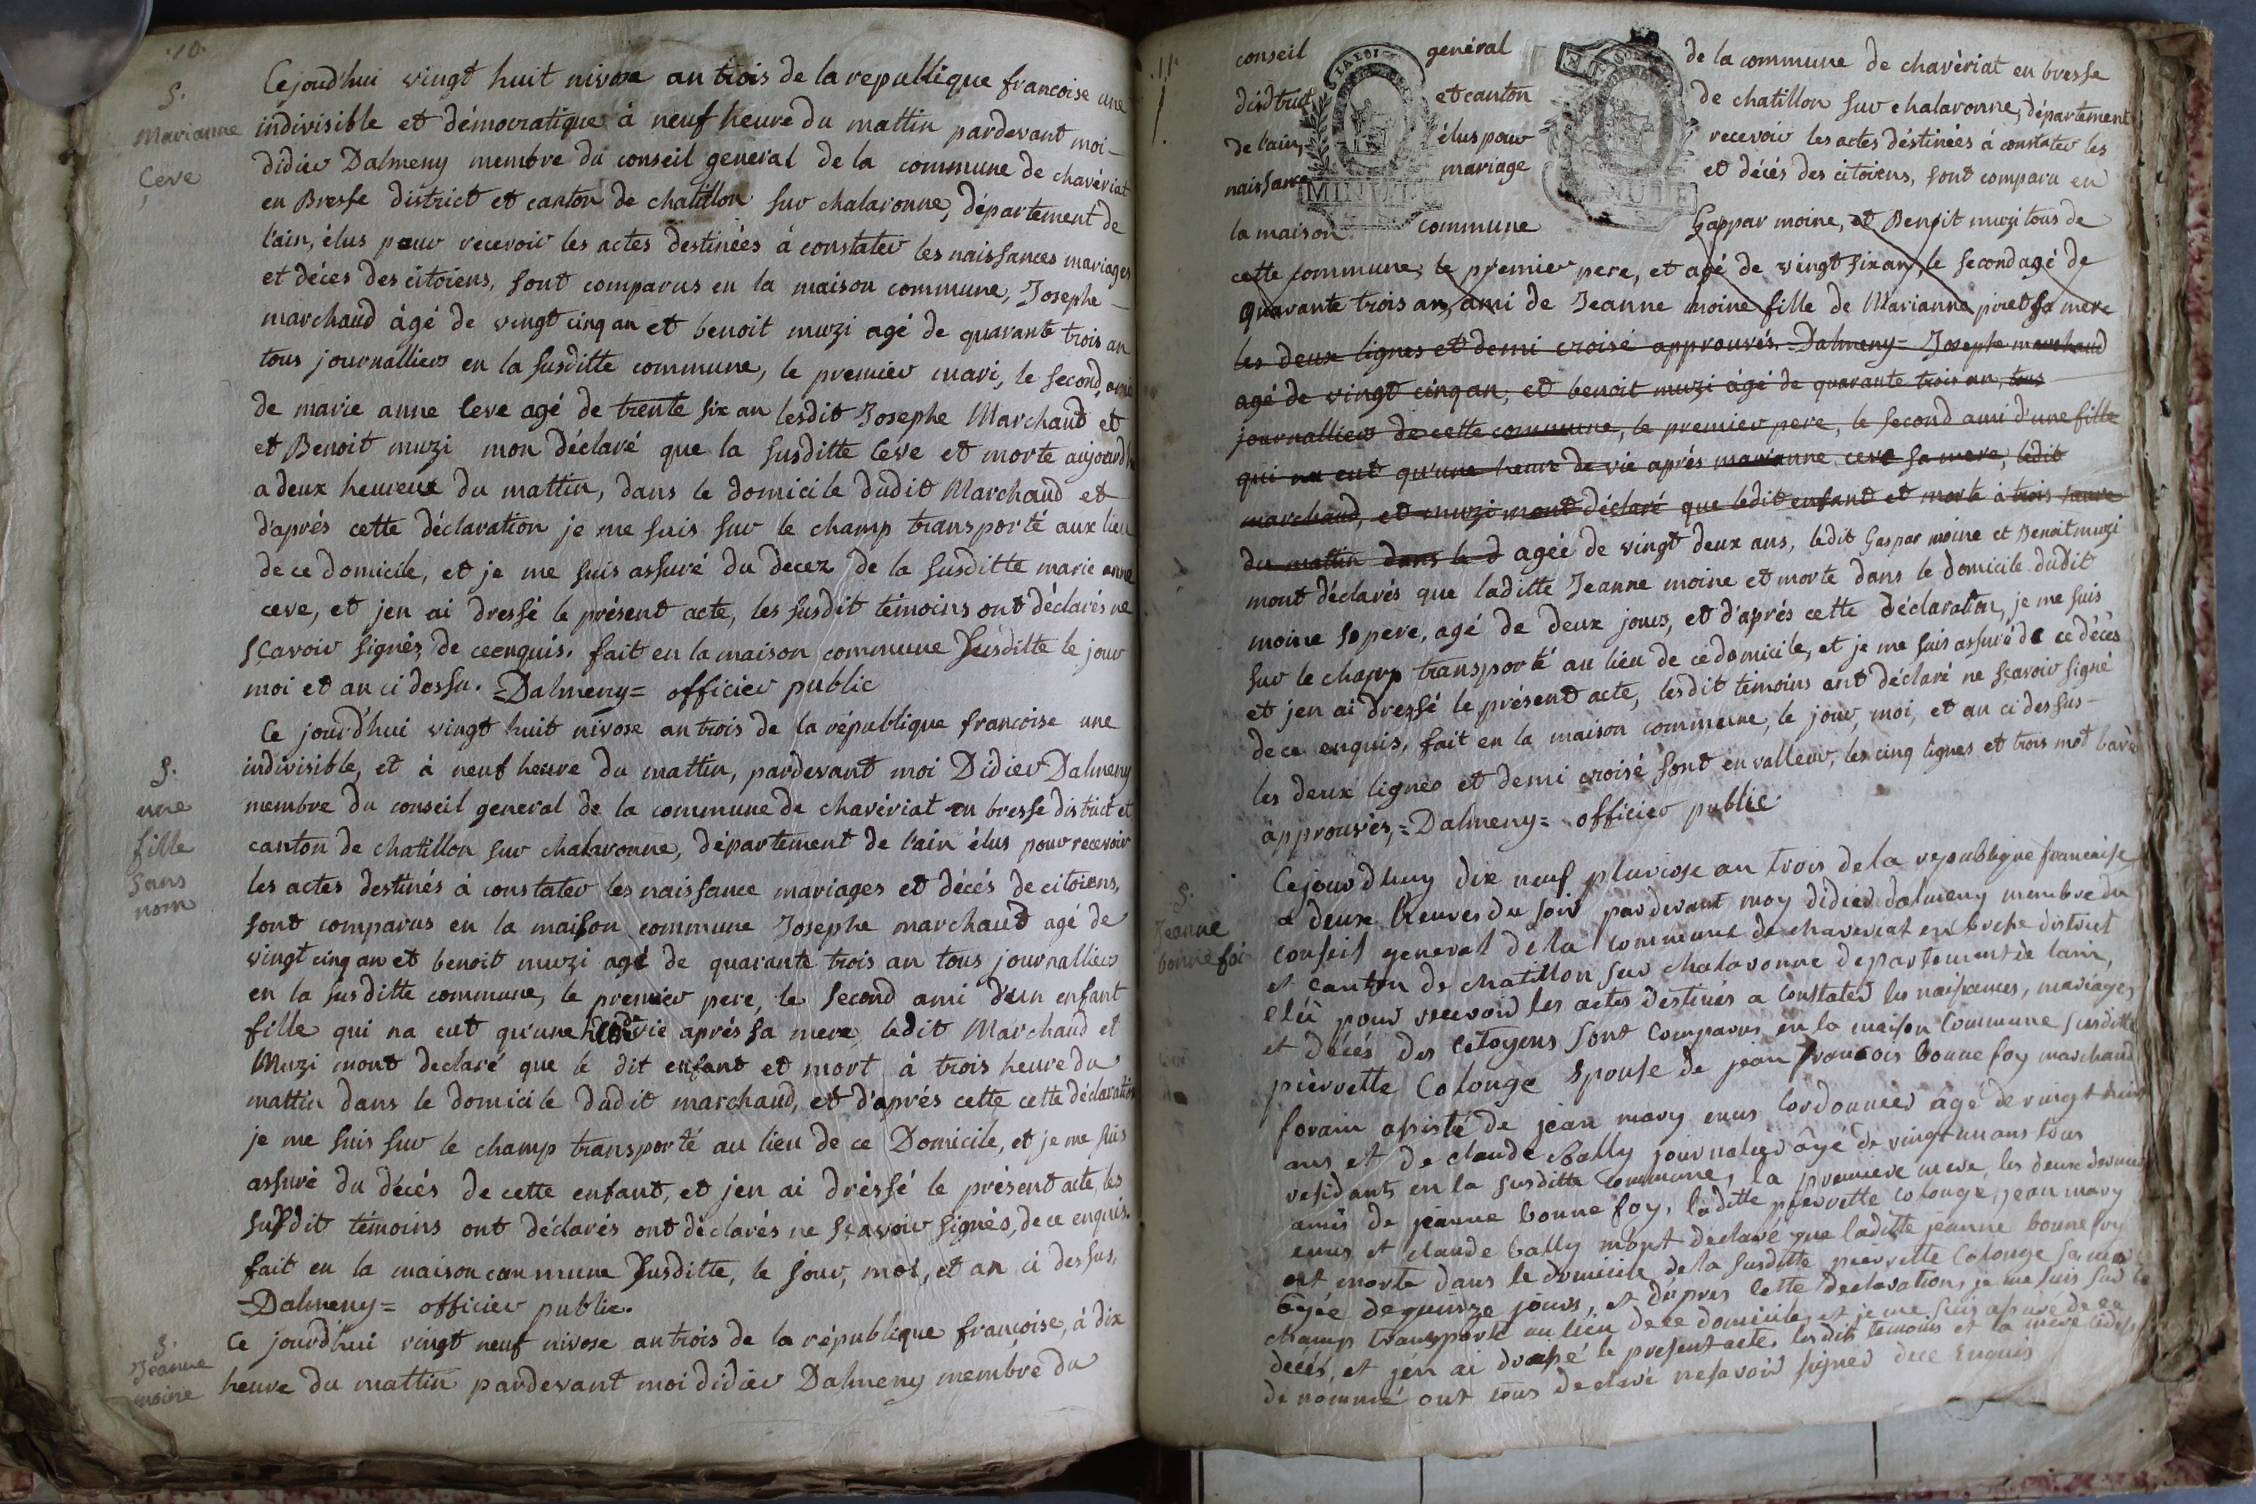 .10.
Cejourd'hui vingt huit nivose an trois de la republique francoise une
S.
Marianne
Ceve
indivisible et démocratique à neuf heure du mattin pardevant moi
didier Dalmeny membre du conseil general de la commune de chavériat
en Bresse district et canton de chatillon sur chalaronne, département de
l'ain, élus pour recevoir les actes destinées à constater les naissances mariages
et déces des citoiens, sont comparus en la maison commune, Josephe
marchaud âgé de vingt cinq an et benoit muzi agé de quarante trois an
tous journalliers en la susditte commune, le premier mari, le second, ami
de marie anne Ceve agé de trente six an lesdit Josephe Marchaud et
et Benoit muzi mon déclaré que la susditte Ceve et morte aujourd
a deux heureux du mattin, dans le domicile dudit Marchaud et
d'aprés cette déclaration je me suis sur le champ transporté aux lieu
de ce domicile, et je me suis assuré du decez de la susditte marie anne
ceve, et jen ai dressé le présent acte, les susdit témoins ont déclarés ne
sçavoir signés, de ceenquis. fait en la maison commune susditte le jour
moi et an ci dessu. =Dalmeny= officier public
Ce jourd'hui vingt huit nivose an trois de la république françoise une
S.
une
fille
sans
nom
indivisible, et à neuf heure du mattin, pardevant moi Didier Dalmeny
membre du conseil general de la commune de chavériat en bresse district et
canton de chatillon sur chalaronne, département de l'ain élus pour recevoir
les actes destinés à constater les naissance mariages et décés de citoiens,
sont comparus en la maison commune Josephe marchaud agé de
vingt cinq an et benoit muzi agé de quarante trois an tous journalliers
en la susditte commune, le premier pere, le second ami d'un enfant
fille qui na eut qu'une heur de vie aprés sa mere ledit Marchaud et
Muzi mont declaré que le dit enfant et mort à trois heure du
mattin dans le domicile dudit marchaud, et d'aprés cette cette déclaration
je me suis sur le champ transporté au lieu de ce Domicile, et je me suis
assuré du décés de cette enfant, et jen ai dréssé le présent acte, les
susdit témoins ont déclarés ont déclarés ne sçavoir signés, de ce enquis.
fait en la maison commune susditte, le jour, moi, et an ci dessus,
=Dalmeny= officier public.
S.
Jeanne
moine
Ce jourd'hui vingt neuf nivose an trois de la république françoise, à dix
heure du mattin pardevant moi didier Dalmeny membre du
.11.
conseil général de la commune de chavèriat en bresse
district et canton de chatillon sur chalaronne, département
de l'ain, élus pour recevoir les actes déstinées à constater les
naissance mariage et décés des citoiens, sont comparu en
LA LOI
MINUTE
la maison commune Gaspar moine, et Benoit muzi tous de
cette commune, le premier pere, et agé de vingt six an, le second agé de
quarante trois an, ami de Jeanne moine fille de Marianne piret sa mere
les deux lignes et demi croisé approuvés. Dalmeny- Josephe marchaud
agé de vingt cinq an, et benoit muzi âgé de quarante trois an, tous
journalliers de cette commune, le premier pere, le second ami d'une fille
qui na eut qu'une heur de vie aprés marianne ceve sa mere, ledit
marchaud, et muzi mont déclaré que ledit enfant et morte à trois heure
du mattin dans le d agée de vingt deux ans, ledit Gaspar moine et Benoit muzi
mont déclarés que laditte Jeanne moine et morte dans le domicile dudit
moine so pere, agé de deux jours, et d'aprés cette déclaration, je me suis
sur le champ transporté au lieu de ce domicile, et je me suis assuré de ce décès
et jen ai dressé le présent acte, lesdit témoins ont déclaré ne sçavoir signé
de ce enquis, fait en la maison commune, le jour, moi, et an ci dessus-
les deux lignes et demi croisé sont en valleur, les cinq lignes et trois mot baré
approuvés, =Dalmeny= officier public
S.
Jeanne
bonnefoi
Cejourdhuy dix neuf pluviose an trois de la republique francaise
a deux heures du soir pardevant moy didier dalmeny membre du
conseil general de la commune de chaveriat en bresse district
et canton de chatillon sur chalaronne departement de lain,
elû pour recevoir les actes destinés a constater les naissances, mariages
et décés des citoyens sont comparus en la maison commune susditte
pierrette Colonge epouse de jean francois bonnefoy marchand
forain assisté de jean mary enus cordonnier agé de vingt huit
ans et de claude bally journalier âgé de vingt un ans tous
residants en la susditte commune, la premiere mere les deux derniers
amis de jeanne bonnefoy, laditte pierrette colonge, jean mary
enus et claude bally mont declaré que laditte jeanne bonnefoy
est morte dans le domicile de la susditte pierrette Colonge sa mere
agée de quinze jours, et d'apres cette declaration, je me suis sur le
champ transporté au lieu de ce domicile, et je me suis assuré de ce
decés, et jen ai dressé le present acte, lesdits temoins et la mere
denommé ont tous declaré ne savoir signer de ce enquis